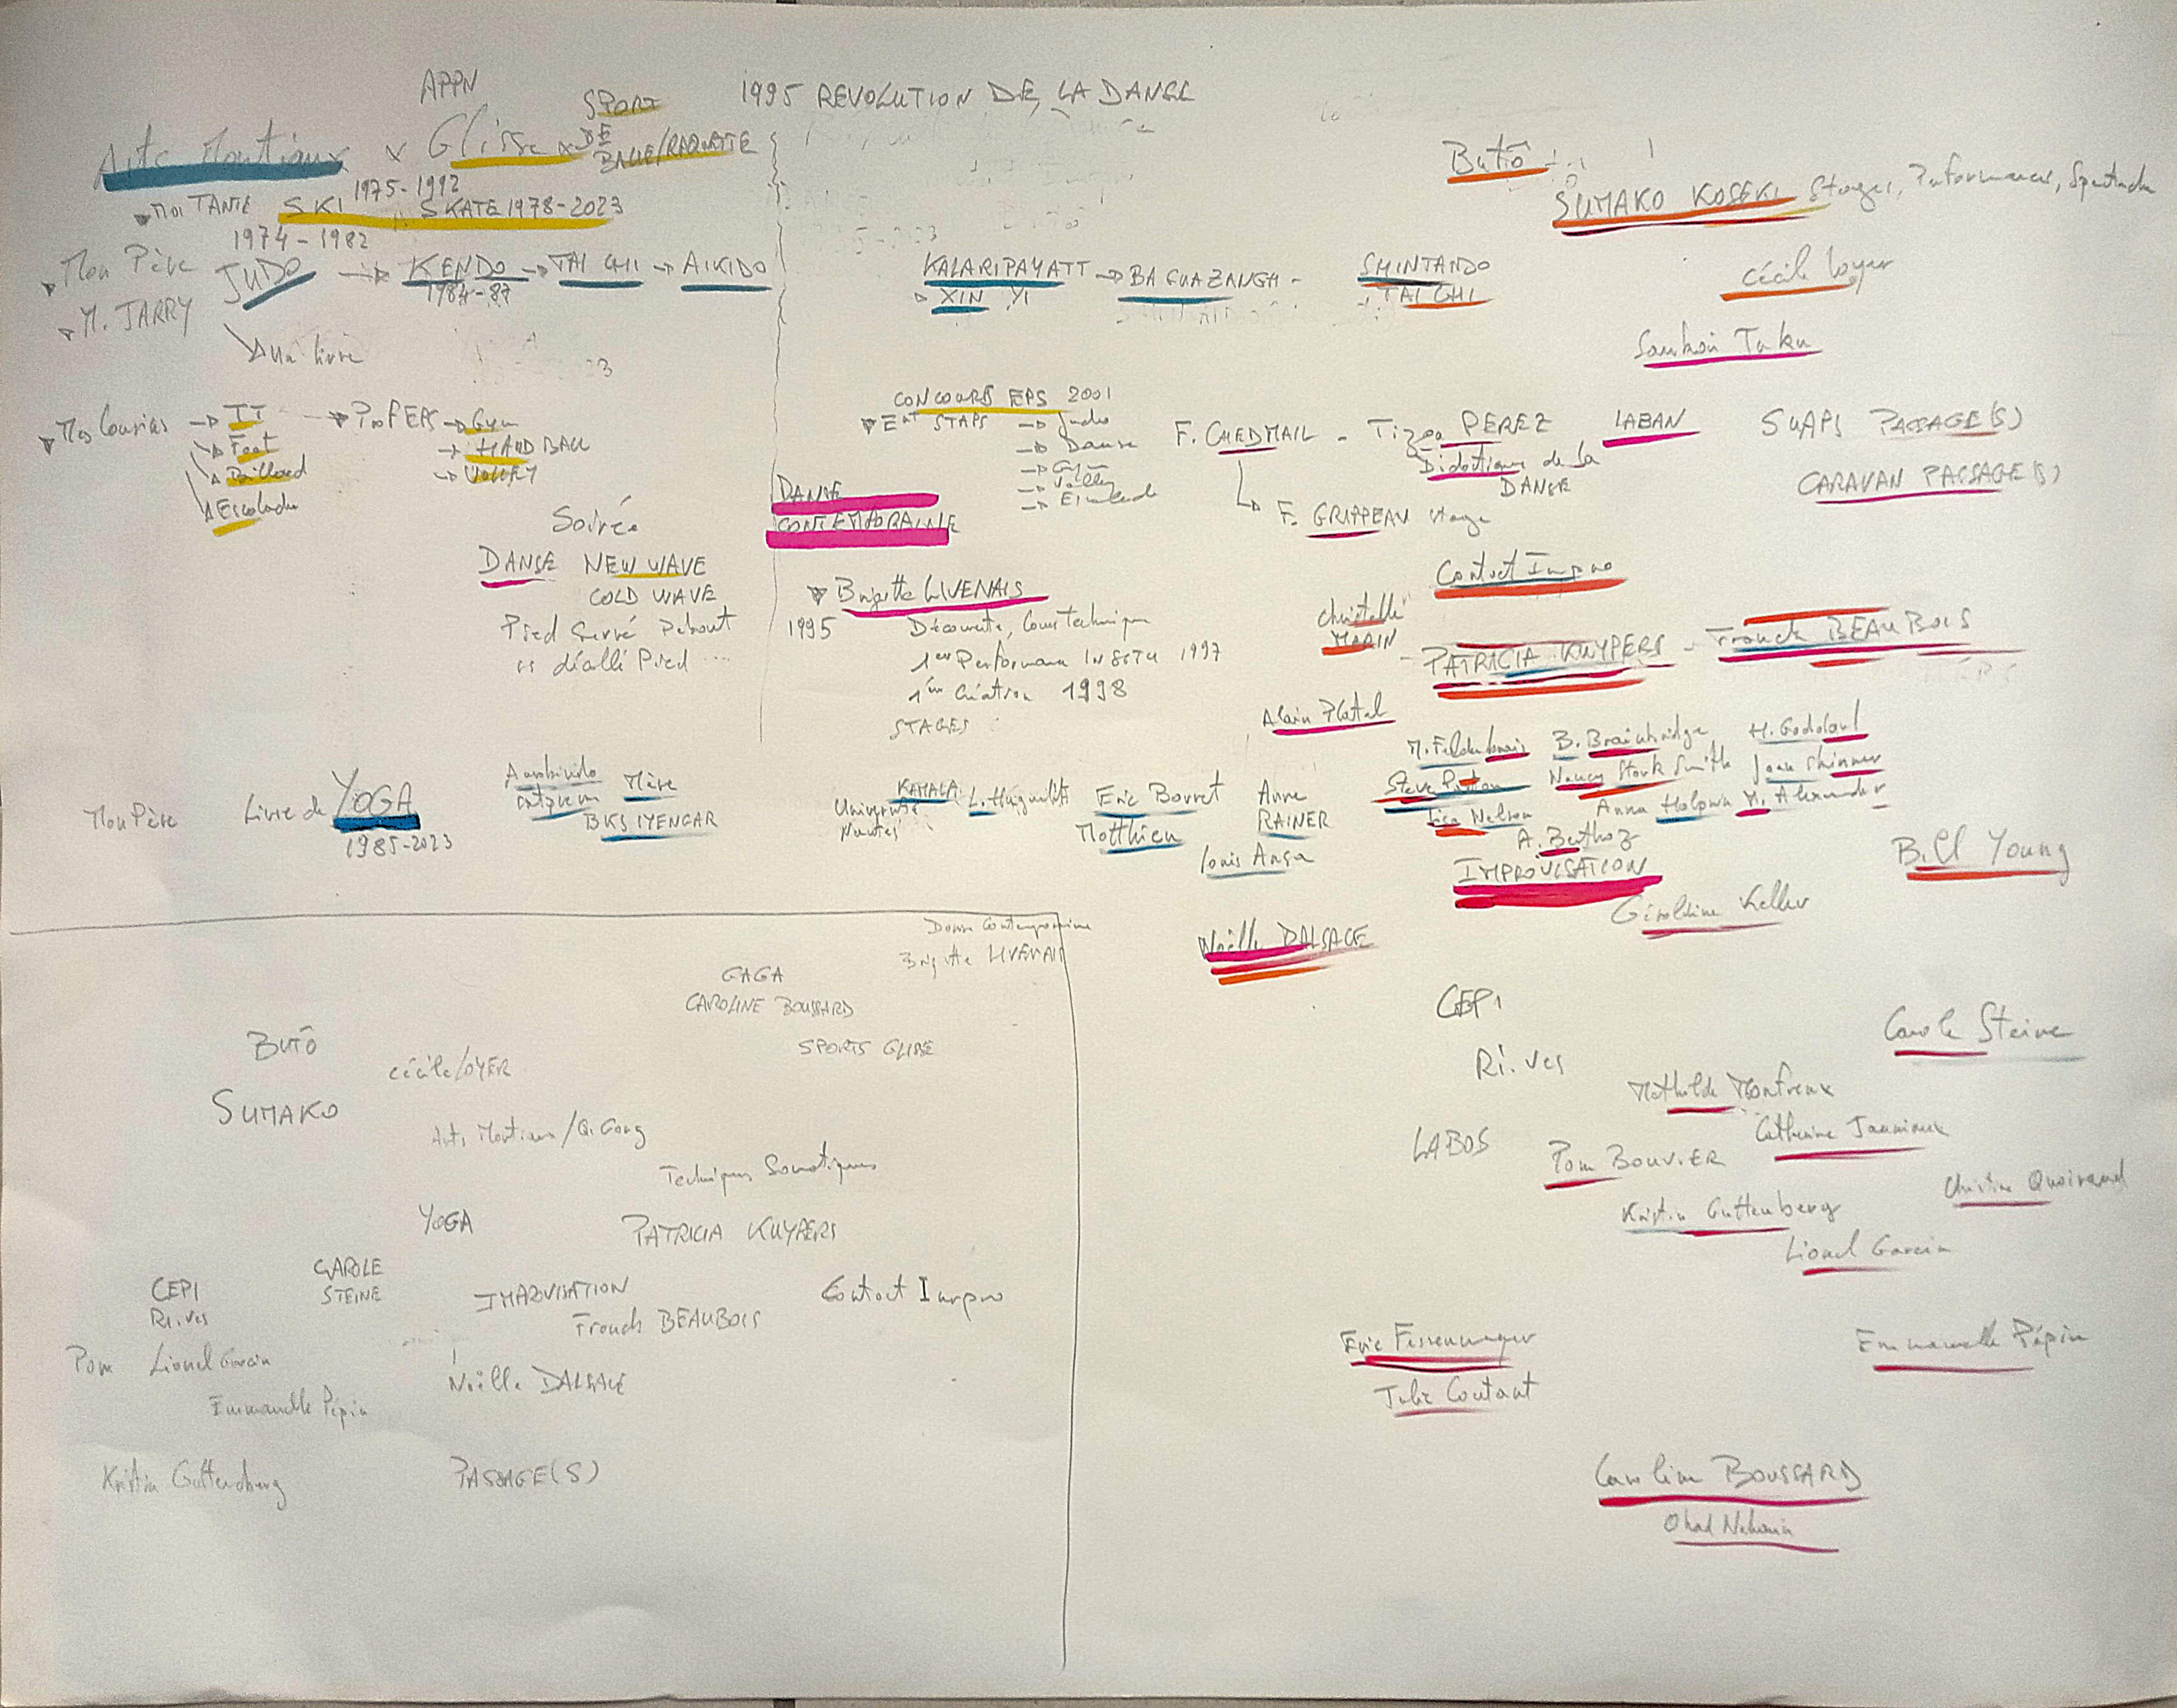 APPN
SPORT
DE
BALLE/RAQUETTE
1995 REVOLUTION DE LA DANSE
Arts Martiaux x Glisse x
1975-1992
▼ MA TANTE SKI SKATE 1978-2023
1974-1982
▼ Mon Père JUDO → KENDO → TAI CHI → AIKIDO
1984-87
▼ M. JARRY
un livre
KALARIPAYATT → BA GUA ZANGH -
XIN YI
SHINTAIDO
TAI CHI
Butô
SUMAKO KOSEKI Stages, Performances, Spectacle
Cécile Loyer
Sankai Juku
▼ Mes Cousins → TT → Prof EPS → Gym
Foot → HANDBALL
Billard → VOLLEY
Escalade
CONCOURS EPS 2001
▼ Ent STAPS → Judo
→ Danse
→ Gym
→ Volley
→ Escalade
F. CHEDMAIL - Tizou PEREZ
Didactique de la
DANSE
LABAN
F. GRIPPEAU stage
SUAPS PASSAGE(S)
CARAVAN PASSAGE(S)
Soirée
DANSE NEW WAVE
COLD WAVE
Pied Serré Debout
DANSE
CONTEMPORAINE
▼ Brigitte LIVENAIS
1995 Découverte, Cours Technique
1er Performance IN SITU 1997
1ère Création 1998
STAGES
Contact Impro
Christelle
- PATRICIA KUYPERS - Franck BEAUBOIS
Alain Platel
M. Feldenkrais B. Brainbridge H. Godard
Steve Paxton Nancy Stark Smith Joan Skinner
Lisa Nelson Anna Halprin M. Alexander
A. Berthoz
IMPROVISATION
Géraldine Keller
Bill Young
Mon Père Livre de YOGA
1985-2023
Aurobindo Mère
BKS IYENGAR
KAMALA
Université
Nantes
Eric Bouret
Matthieu
Anne
RAINER
Louis Ansa
Noëlle DALSACE
CEPI
Ri.ves
LABOS
Carole Steine
Mathilde Monfreux
Catherine Jauniaux
Pom BOUVIER
Christine Quoiraud
Kristin Guttenberg
Lionel Garcin
Eric Fessenmeyer
Julie Coutant
Emmanuelle Pépin
Caroline BOUSSARD
Ohad Naharin
Danse Contemporaine
Brigitte LIVENAIS
GAGA
CAROLINE BOUSSARD
SPORTS GLISSE
BUTÔ
Cécile LOYER
SUMAKO
Arts Martiaux / Qi Gong
Techniques Somatiques
YOGA
PATRICIA KUYPERS
CAROLE
STEINE
CEPI
Ri.ves
IMPROVISATION
Franck BEAUBOIS
Contact Impro
Pom Lionel Garcin
Emmanuelle Pépin
Noëlle DALSACE
Kristin Guttenberg
PASSAGE(S)